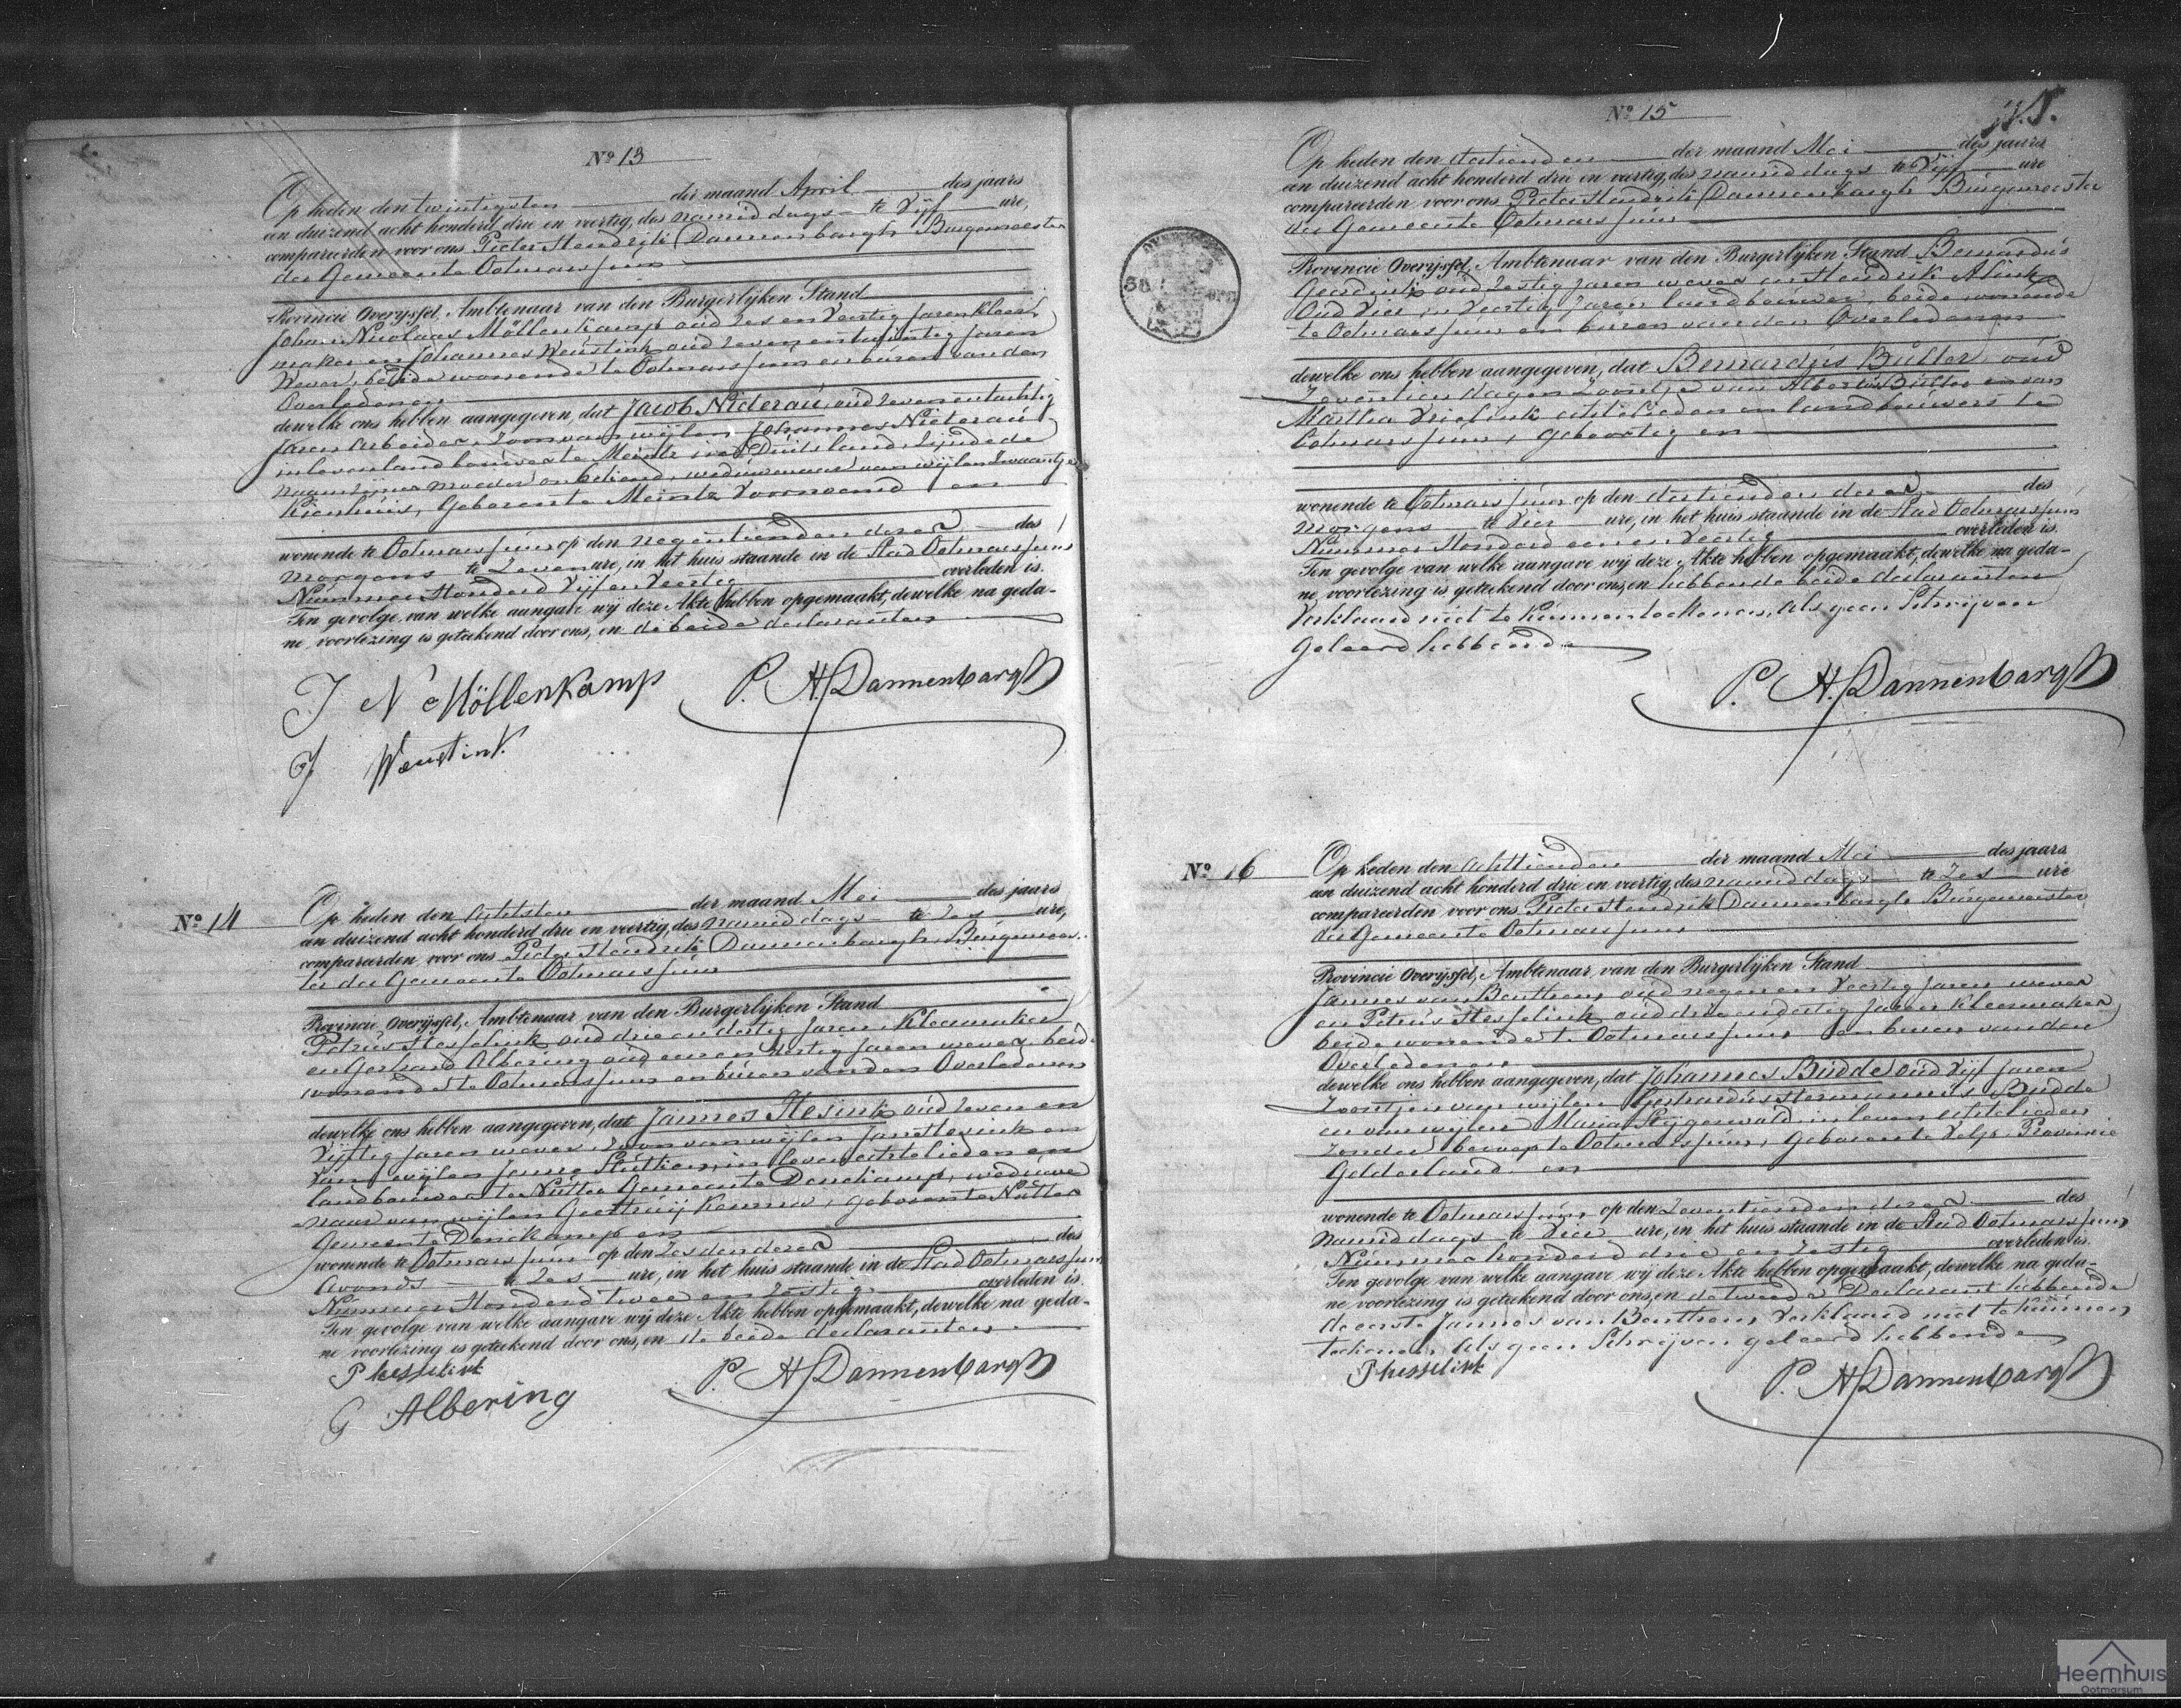 Nº 13
Op heden den twintigsten der maand April des jaars
een duizend acht honderd drie en veertig, des namiddags te Vijf ure,
compareerden voor ons Pieter Hendrik Dannenbargh Burgemeester
der Gemeente Ootmarssum
Provincie Overijssel, Ambtenaar van den Burgerlijken Stand
Johan Nicolaas Möllenkamp oud zes en Veertig Jaren kleer,
maker en Johannes Weustink oud zeven en twintig Jaren
Wever, beide wonende te Ootmarssum en buren van den
Overledenen
dewelke ons hebben aangegeven, dat Jacob Niderau, oud zeven en tachtig
Jaren Arbeider, Zoon van wijlen Johannes Nieterau
in leven landbouwer te Meintz in Duitsland, zijnde de
naam zijner moeder onbekend, weduwenaar van wijlen Zwaantje
Kienhuis, Geboren te Meintz Voornoemd en
wonende te Ootmarssum op den negentienden dezer des
morgens te Zeven ure, in het huis staande in de Stad Ootmarssum
Nummer Honderd Vijf en Veertig overleden is.
Ten gevolge van welke aangave wij deze Akte hebben opgemaakt, dewelke na geda-
ne voorlezing is geteekend door ons, en de beide declaranten
J N Möllenkamp P. H. Dannenbargh
J Weustink
Nº 14
Op heden den Achtsten der maand Mei des jaars
een duizend acht honderd drie en veertig, des namiddags te zes ure,
compareerden voor ons Pieter Hendrik Dannenbargh, Burgemees-
ter der Gemeente Ootmarssum
Provincie Overijssel, Ambtenaar van den Burgerlijken Stand
Petrus Hesselink oud drie en dertig Jaren Kleermaker
en Gerhard Albering oud een en Jaren wever, beide
wonende te Ootmarssum en buren van den Overledenen
dewelke ons hebben aangegeven, dat Jannes Hesink oud zeven en
Vijftig Jaren wever, Zoon van wijlen Jan Hesink en
Van wijlen Janna in leven echtelieden en
landbouwers te Nutter Gemeente Denekamp, weduwe
naar van wijlen Geertruij , Geboren te Nutter
Gemeente Denekamp en
wonende te Ootmarssum op den zesden dezer des
Avonds te zes ure, in het huis staande in de Stad Ootmarssum
Nummer Honderd twee en zestig overleden is.
Ten gevolge van welke aangave wij deze Akte hebben opgemaakt, dewelke na geda-
ne voorlezing is geteekend door ons, en de beide declaranten
P hesselink P. H. Dannenbargh
G Albering
Nº 15
Op heden den dertienden der maand Mei des jaars
een duizend acht honderd drie en veertig, des namiddags te Vijf ure
compareerden voor ons Pieter Hendrik Dannenbargh Burgemeester
der Gemeente Ootmarssum
Provincie Overijssel, Ambtenaar van den Burgerlijken Stand Bernardus
Geerdink oud zestig Jaren wever en Hendrik Alink
Oud Vier en Veertig Jaren landbouwer, beide wonende
te Ootmarssum en buren van den Overledenen
dewelke ons hebben aangegeven, dat Bernardus Bulter, oud
Zeventien dagen Zoontje van Albertus Bulter en van
Martha Vrielink echtelieden en landbouwers te
Ootmarssum, Geboortig en
wonende te Ootmarssum op den dertienden dezer des
morgens te Vier ure, in het huis staande in de Stad Ootmarssum
Nummer Honderd een en Veertig overleden is.
Ten gevolge van welke aangave wij deze Akte hebben opgemaakt, dewelke na geda-
ne voorlezing is geteekend door ons, en hebbende beide declaranten
Verklaard niet te kunnen teekenen, als geen Schrijven
Geleerd hebbende
P. H. Dannenbargh
Nº 16
Op heden den Achttienden der maand Mei des jaars
een duizend acht honderd drie en veertig, des namiddags te Zes ure
compareerden voor ons Pieter Hendrik Dannenbargh Burgemeester
der Gemeente Ootmarssum
Provincie Overijssel, Ambtenaar van den Burgerlijken Stand
Jannes van Benthem, oud negen en Veertig Jaren wever
en Petrus Hesselink oud drie en dertig Jaren Kleermaker
beide wonende te Ootmarssum en buren van den
Overledenen
dewelke ons hebben aangegeven, dat Johannes Budde oud Vijf Jaren
Zoontjen van wijlen Gerhardus Hermannus Budde
en van wijlen Maria Steggerwald in leven echtelieden
zonder beroep te Ootmarssum, Geboren te Velp Provincie
Gelderland en
wonende te Ootmarssum op den Zeventienden dezer des
Namiddags te Vier ure, in het huis staande in de Stad Ootmarssum
Nummer honderd drie en zestig overleden is.
Ten gevolge van welke aangave wij deze Akte hebben opgemaakt, dewelke na geda-
ne voorlezing is geteekend door ons, en de tweede Declarant hebbende
de eerste Jannes van Benthem Verklaard niet te kunnen
teekenen, als geen Schrijven geleerd hebbende
P hesselink P. H. Dannenbargh
Heemhuis
Ootmarsum